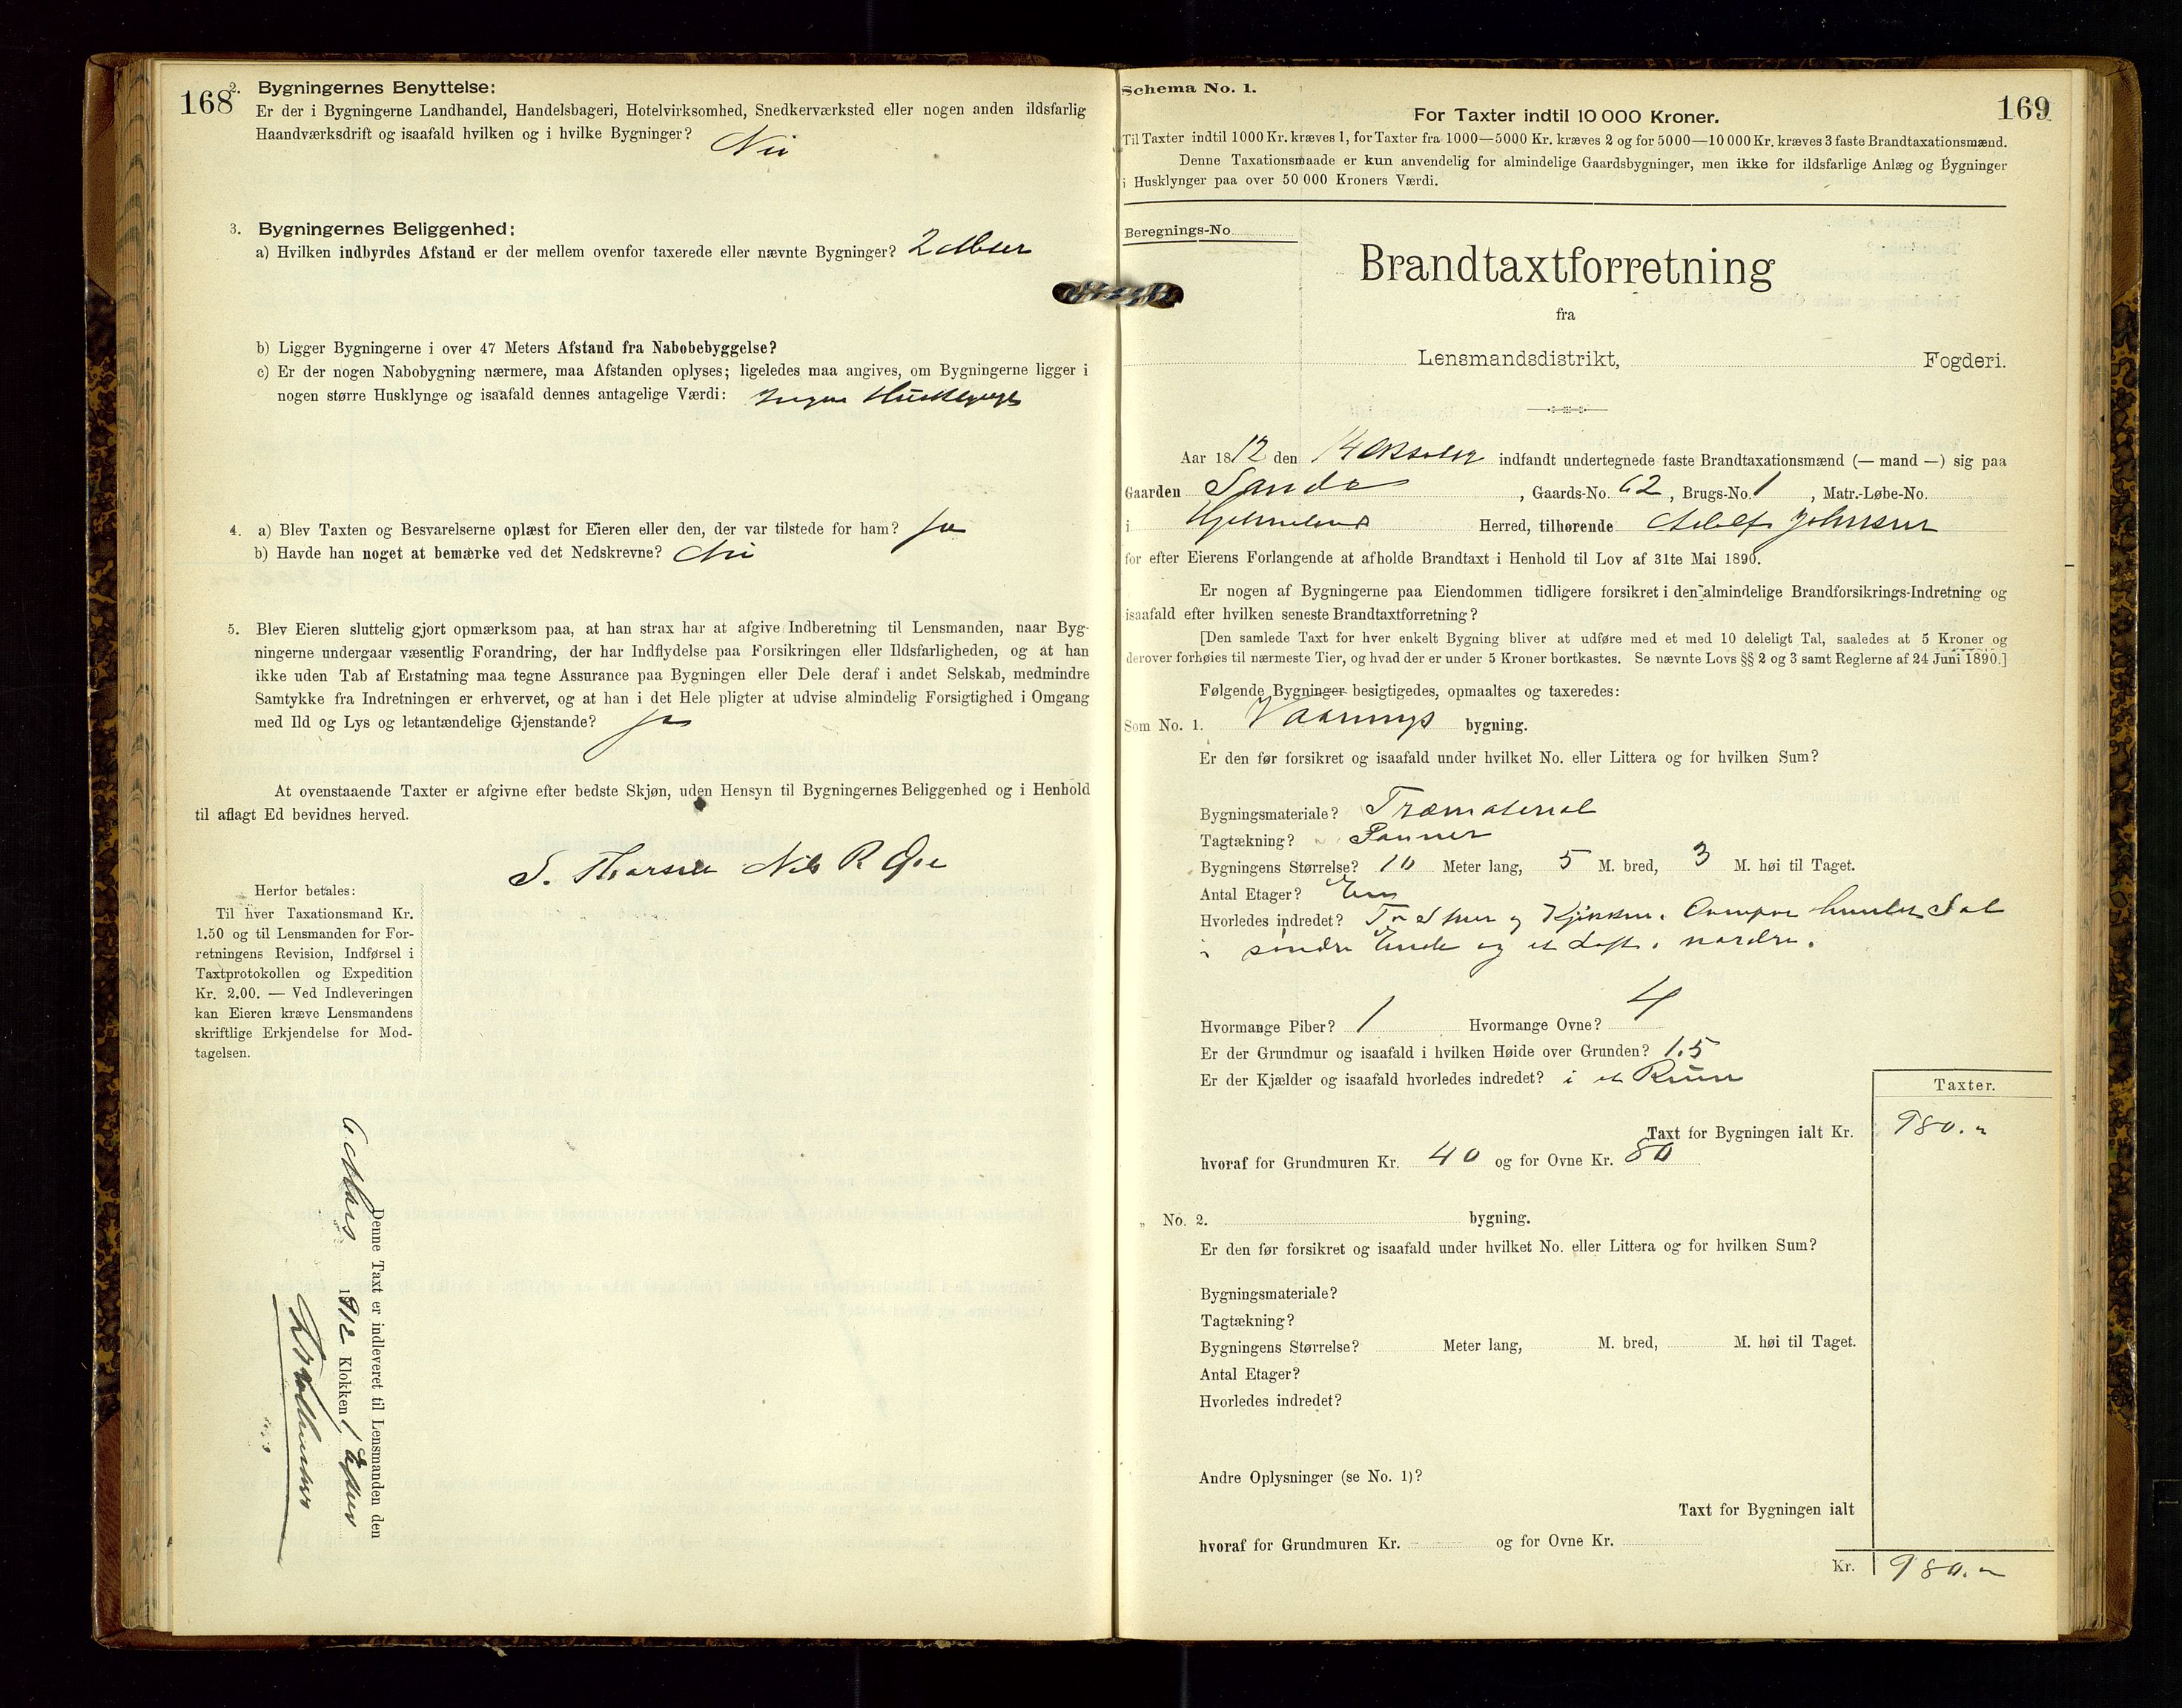 168
2. Bygningernes Benyttelse:
Er der i Bygningerne Landhandel, Handelsbageri, Hotelvirksomhed, Snedkerværksted eller nogen anden ildsfarlig
Haandværksdrift og isaafald hvilken og i hvilke Bygninger? Nei
3. Bygningernes Beliggenhed:
a) Hvilken indbyrdes Afstand er der mellem ovenfor taxerede eller nævnte Bygninger? 2 Meter
b) Ligger Bygningerne i over 47 Meters Afstand fra Nabobebyggelse?
c) Er der nogen Nabobygning nærmere, maa Afstanden oplyses; ligeledes maa angives, om Bygningerne ligger i
nogen større Husklynge og isaafald dennes antagelige Værdi: Ingen Husklynge
4. a) Blev Taxten og Besvarelserne oplæst for Eieren eller den, der var tilstede for ham? Ja
b) Havde han noget at bemærke ved det Nedskrevne? Nei
5. Blev Eieren sluttelig gjort opmærksom paa, at han strax har at afgive Indberetning til Lensmanden, naar Byg-
ningerne undergaar væsentlig Forandring, der har Indflydelse paa Forsikringen eller Ildsfarligheden, og at han
ikke uden Tab af Erstatning maa tegne Assurance paa Bygningen eller Dele deraf i andet Selskab, medmindre
Samtykke fra Indretningen er erhvervet, og at han i det Hele pligter at udvise almindelig Forsigtighed i Omgang
med Ild og Lys og letantændelige Gjenstande? Ja
At ovenstaaende Taxter er afgivne efter bedste Skjøn, uden Hensyn til Bygningernes Beliggenhed og i Henhold
til aflagt Ed bevidnes herved.
S. Nils R
Herfor betales:
Til hver Taxationsmand Kr.
1.50 og til Lensmanden for For-
retningens Revision, Indførsel i
Taxtprotokollen og Expedition
Kr. 2.00. — Ved Indleveringen
kan Eieren kræve Lensmandens
skriftlige Erkjendelse for Mod-
tagelsen.
Denne Taxt er indleveret til Lensmanden den
1912 Klokken 1
169
Schema No. 1.
For Taxter indtil 10 000 Kroner.
Til Taxter indtil 1000 Kr. kræves 1, for Taxter fra 1000—5000 Kr. kræves 2 og for 5000—10 000 Kr. kræves 3 faste Brandtaxationsmænd.
Denne Taxationsmaade er kun anvendelig for almindelige Gaardsbygninger, men ikke for ildsfarlige Anlæg og Bygninger
i Husklynger paa over 50 000 Kroners Værdi.
Beregnings-No.
Brandtaxtforretning
fra
Lensmandsdistrikt, Fogderi.
Aar 1812 den 14 Oktober indfandt undertegnede faste Brandtaxationsmænd (— mand —) sig paa
Gaarden Sande, Gaards-No. 62, Brugs-No. 1, Matr.-Løbe-No.
i Hjelmeland Herred, tilhørende Adolf Johnsen
for efter Eierens Forlangende at afholde Brandtaxt i Henhold til Lov af 31te Mai 1890.
Er nogen af Bygningerne paa Eiendommen tidligere forsikret i den almindelige Brandforsikrings-Indretning og
isaafald efter hvilken seneste Brandtaxtforretning?
[Den samlede Taxt for hver enkelt Bygning bliver at udføre med et med 10 deleligt Tal, saaledes at 5 Kroner og
derover forhøies til nærmeste Tier, og hvad der er under 5 Kroner bortkastes. Se nævnte Lovs §§ 2 og 3 samt Reglerne af 24 Juni 1890.]
Følgende Bygninger besigtigedes, opmaaltes og taxeredes:
Som No. 1. Vaanings bygning.
Er den før forsikret og isaafald under hvilket No. eller Littera og for hvilken Sum?
Bygningsmateriale? Træmaterial
Tagtækning? Panner
Bygningens Størrelse? 10 Meter lang, 5 M. bred, 3 M. høi til Taget.
Antal Etager? Een
Hvorledes indredet? To Stuer og Kjøkken. Sal
i søndre Ende og et Loft i nordre.
Hvormange Piber? 1 Hvormange Ovne? 4
Er der Grundmur og isaafald i hvilken Høide over Grunden? 1.5
Er der Kjælder og isaafald hvorledes indredet? i et Rum
Taxter.
Taxt for Bygningen ialt Kr. 980.-
hvoraf for Grundmuren Kr. 40 og for Ovne Kr. 80
„ No. 2. bygning.
Er den før forsikret og isaafald under hvilket No. eller Littera og for hvilken Sum?
Bygningsmateriale?
Tagtækning?
Bygningens Størrelse? Meter lang, M. bred, M. høi til Taget.
Antal Etager?
Hvorledes indredet?
Andre Oplysninger (se No. 1)?
Taxt for Bygningen ialt
hvoraf for Grundmuren Kr. og for Ovne Kr.
Kr. 980.-